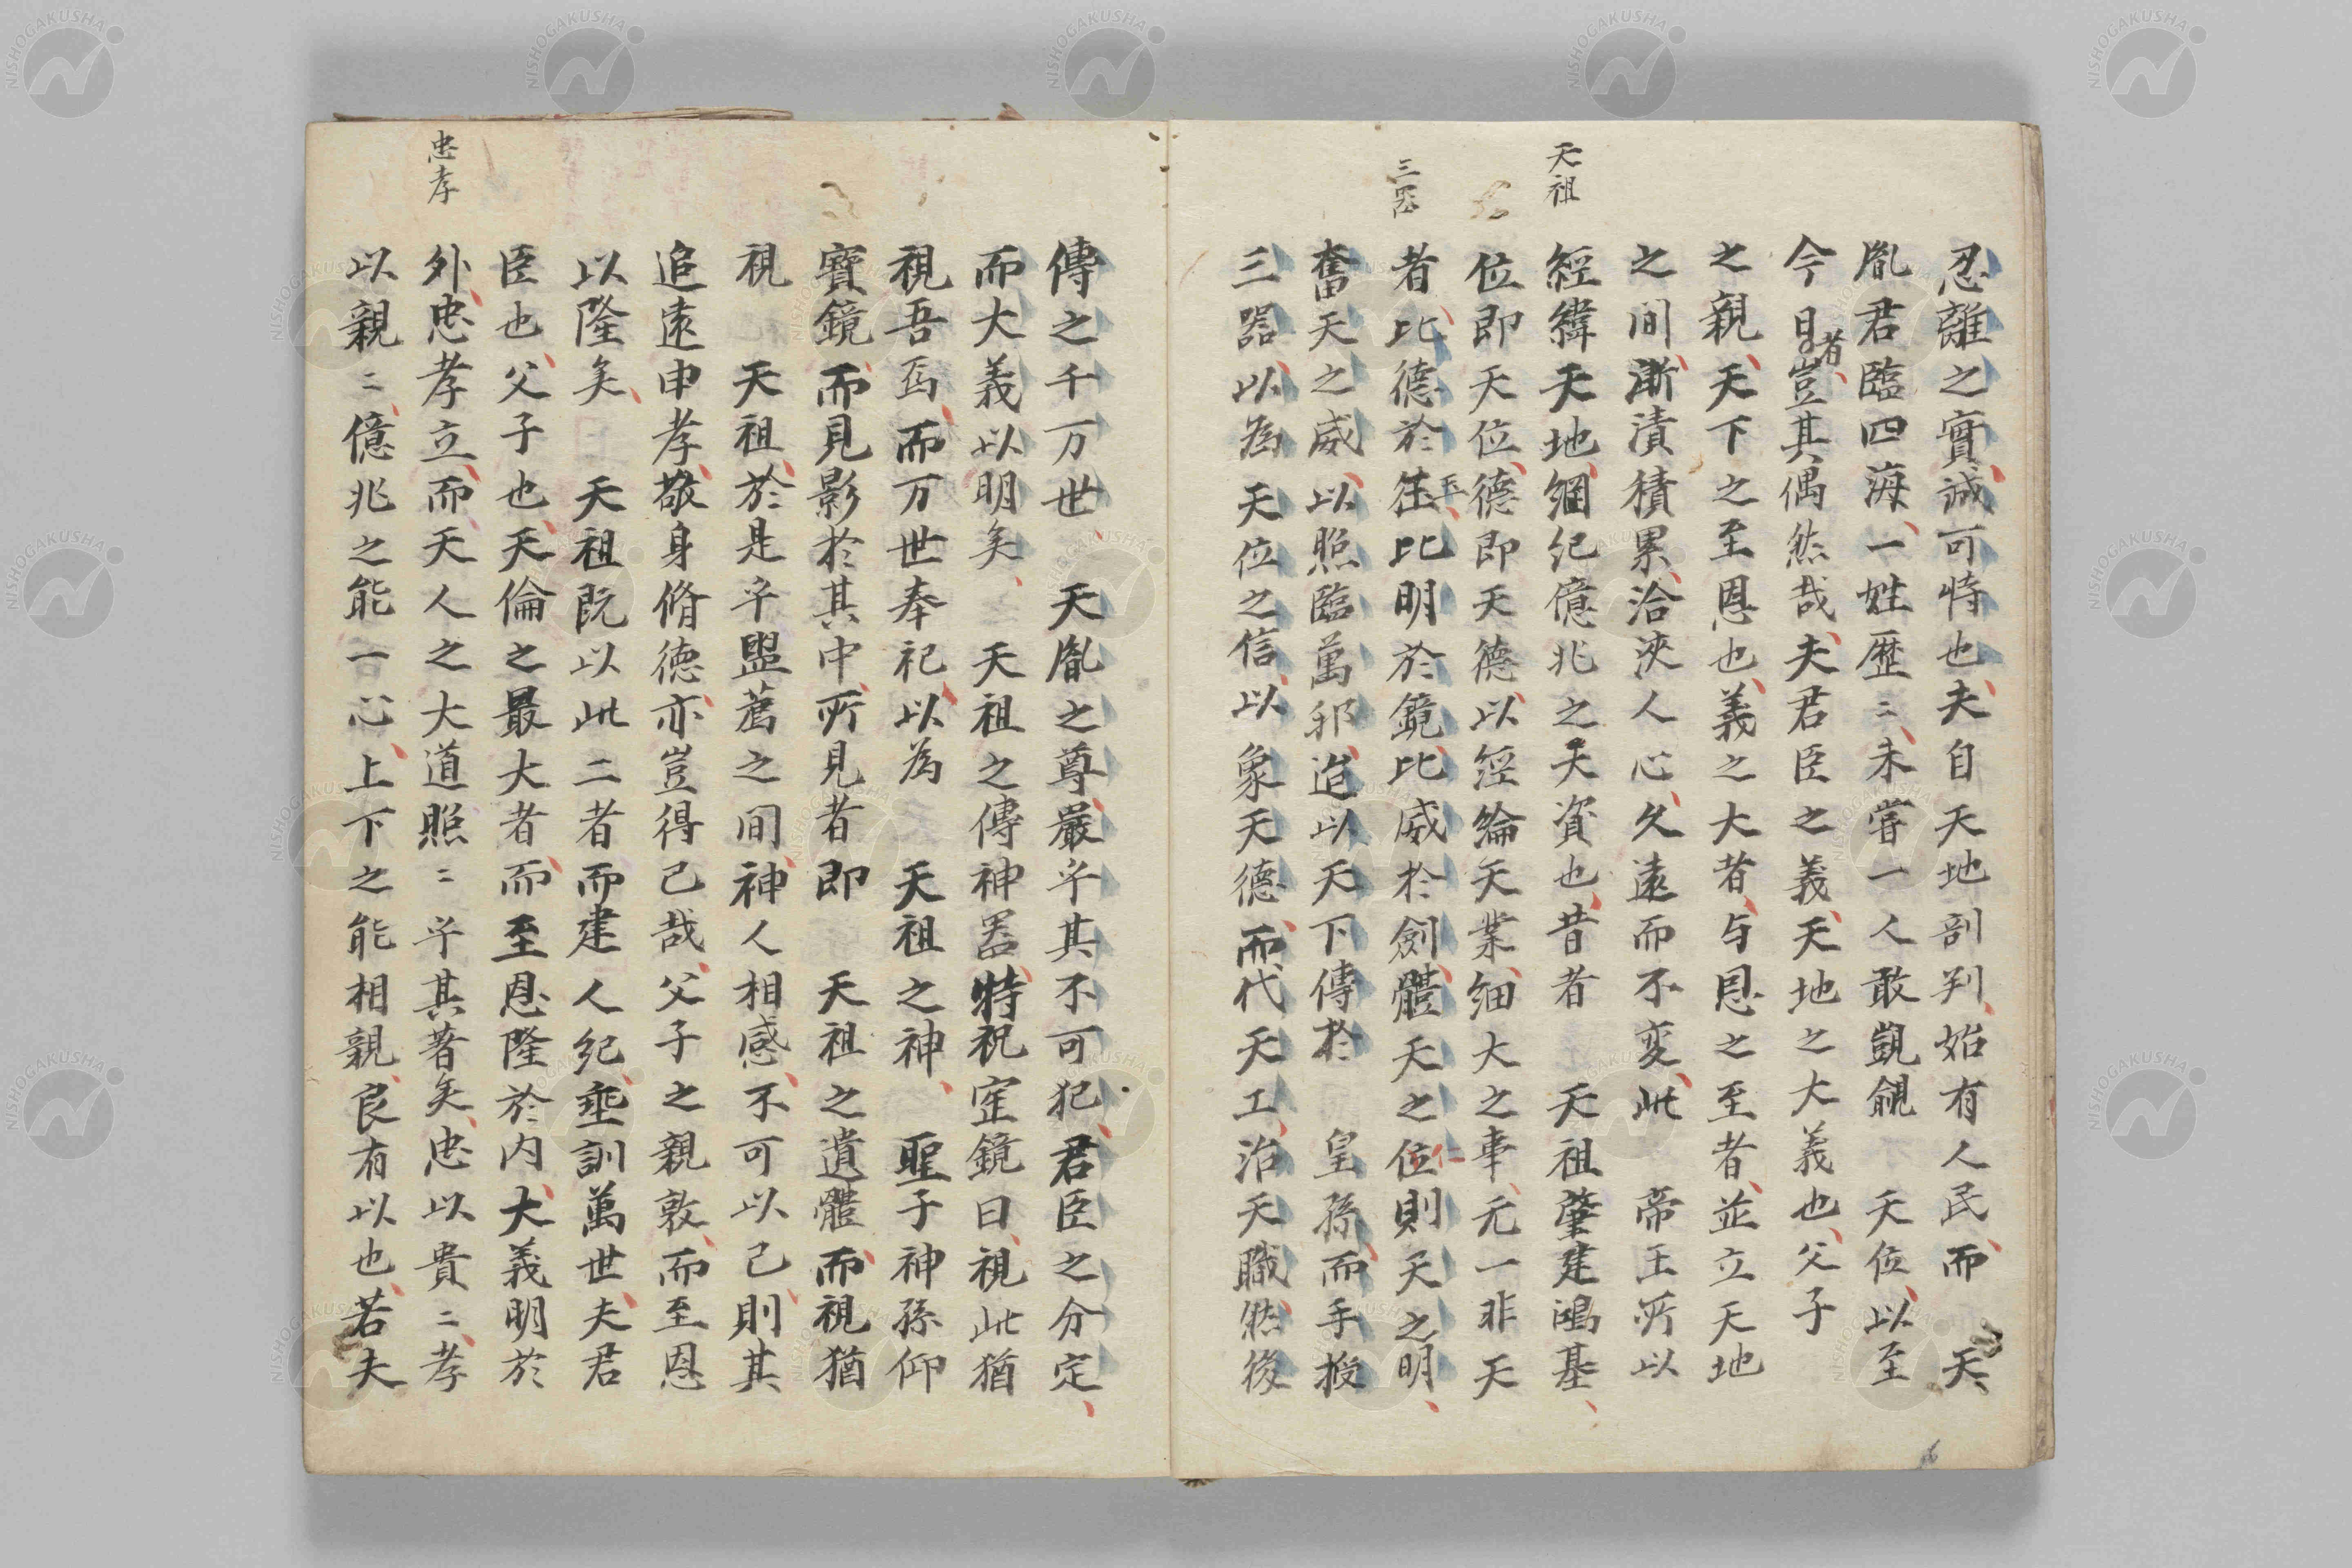 忍離之實、誠可恃也、夫自天地剖判、始有人民、而　天
胤君臨四海、一姓歴〻、未嘗一人敢覬覦　天位、以至
今日者、豈其偶然哉、夫君臣之義、天地之大義也、父子
之親、天下之至恩也、義之大者、与恩之至者、並立天地
之間、漸漬積累、洽浹人心、久遠而不変、此　帝王所以
天祖
經緯天地、綱紀億兆之天資也、昔者　天祖肇建鴻基、
位即天位、德即天德、以經綸天業、細大之事、元一非天
三器
者、比德於玉、比明於鏡、比威於劍、體天之仁、則天之明、
奮天之威、以照臨萬邦、迨以天下傳於　皇孫、而手授
三器、以為天位之信、以象天德、而代天工、治天職、然後
傳之千万世、　天胤之尊、嚴乎其不可犯、君臣之分定、
而大義以明矣、　天祖之傳神器、特祝寚鏡曰、視此猶
視吾焉、而万世奉祀、以為　天祖之神、　聖子神孫仰
寶鏡、而見影於其中、所見者即　天祖之遺體、而視猶
視　天祖、於是乎盥薦之間、神人相感、不可以已、則其
追遠申孝、敬身脩德、亦豈得已哉、父子之親敦、而至恩
以隆矣、　天祖既以此二者而建人紀、垂訓萬世、夫君
臣也、父子也、天倫之最大者、而至恩隆於内、大義明於
忠孝
外、忠孝立、而天人之大道照〻乎其著矣、忠以貴〻、孝
以親〻、億兆之能一心、上下之能相親、良有以也、若夫